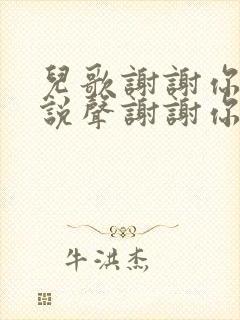 兒歌謝謝你
説聲謝謝你
牛洪杰